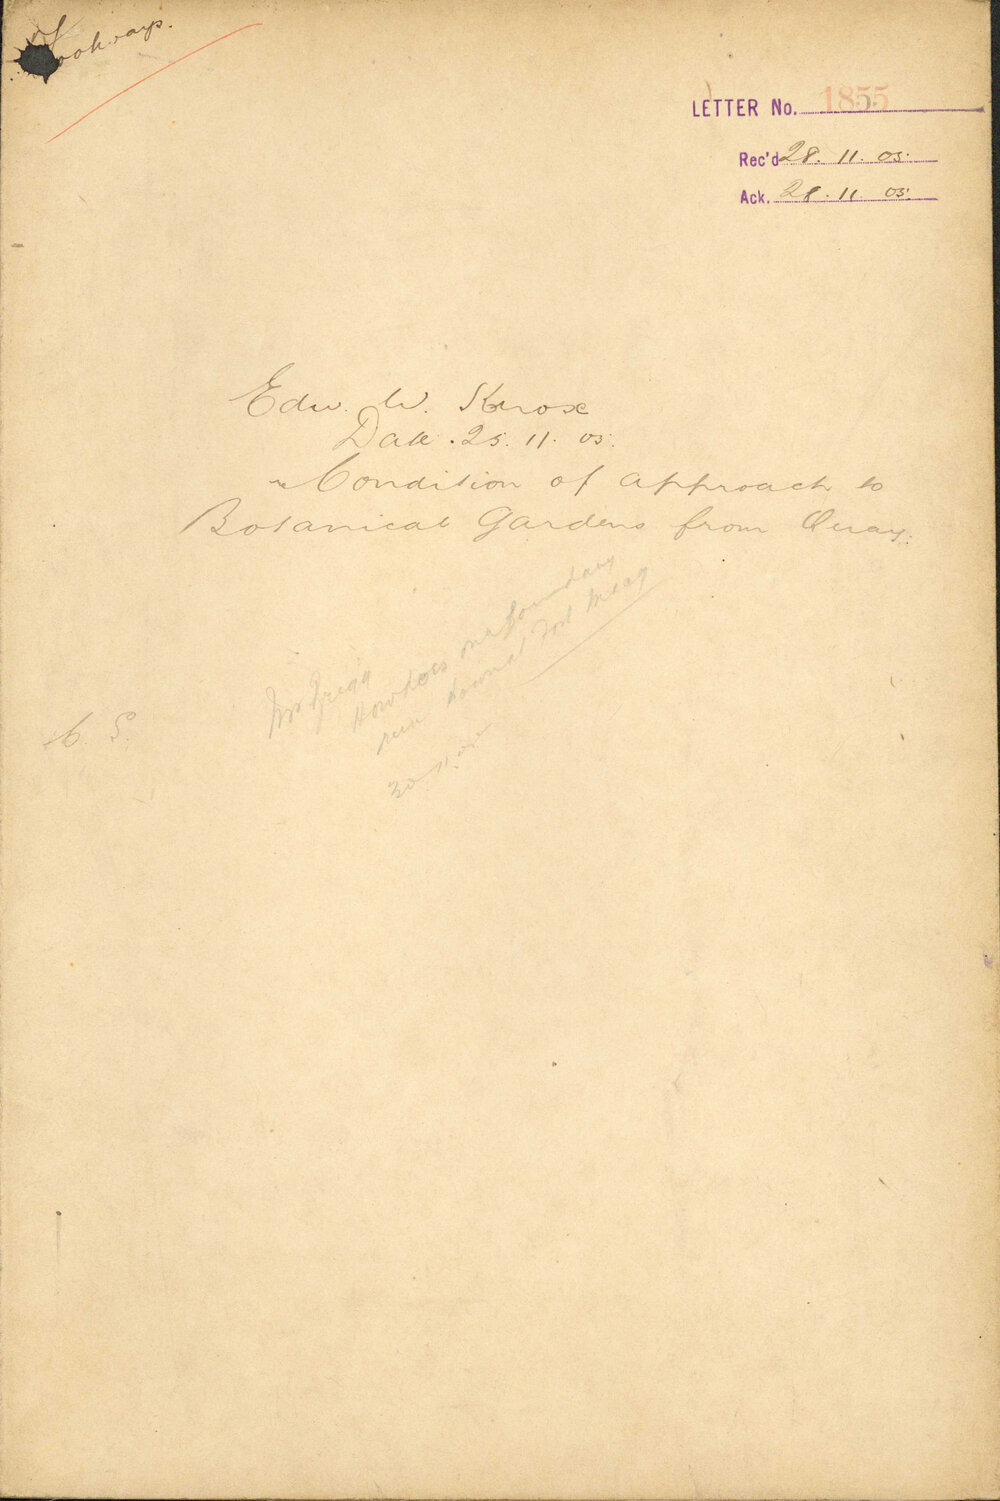 Footways.
LETTER No. 1855
Rec'd 28. 11. 05.
Ack. 28. 11. 05.
Edw. W. Knox
Date. 25. 11. 05.
re Condition of approach to
Botanical Gardens from Quay.
Mr Gregg
How does our boundary
run round at Fort Macq
30.11.05
C. S.